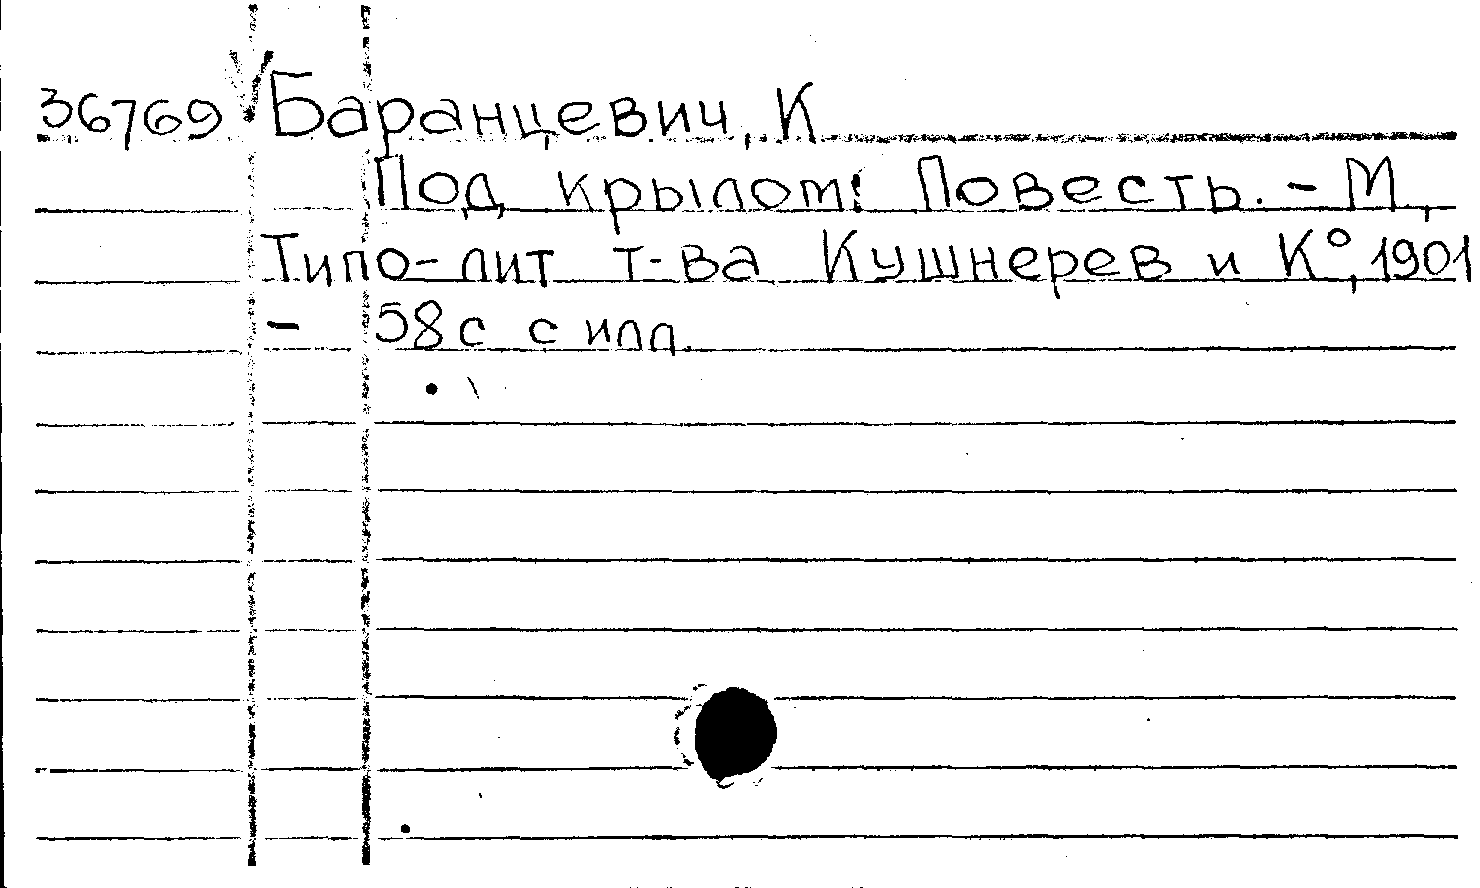 36769 √ Баранцевич, К
Под крылом: Повесть. - М,
Типо-лит т-ва Кушнерев и К°, 1901
- 58 с с илл.